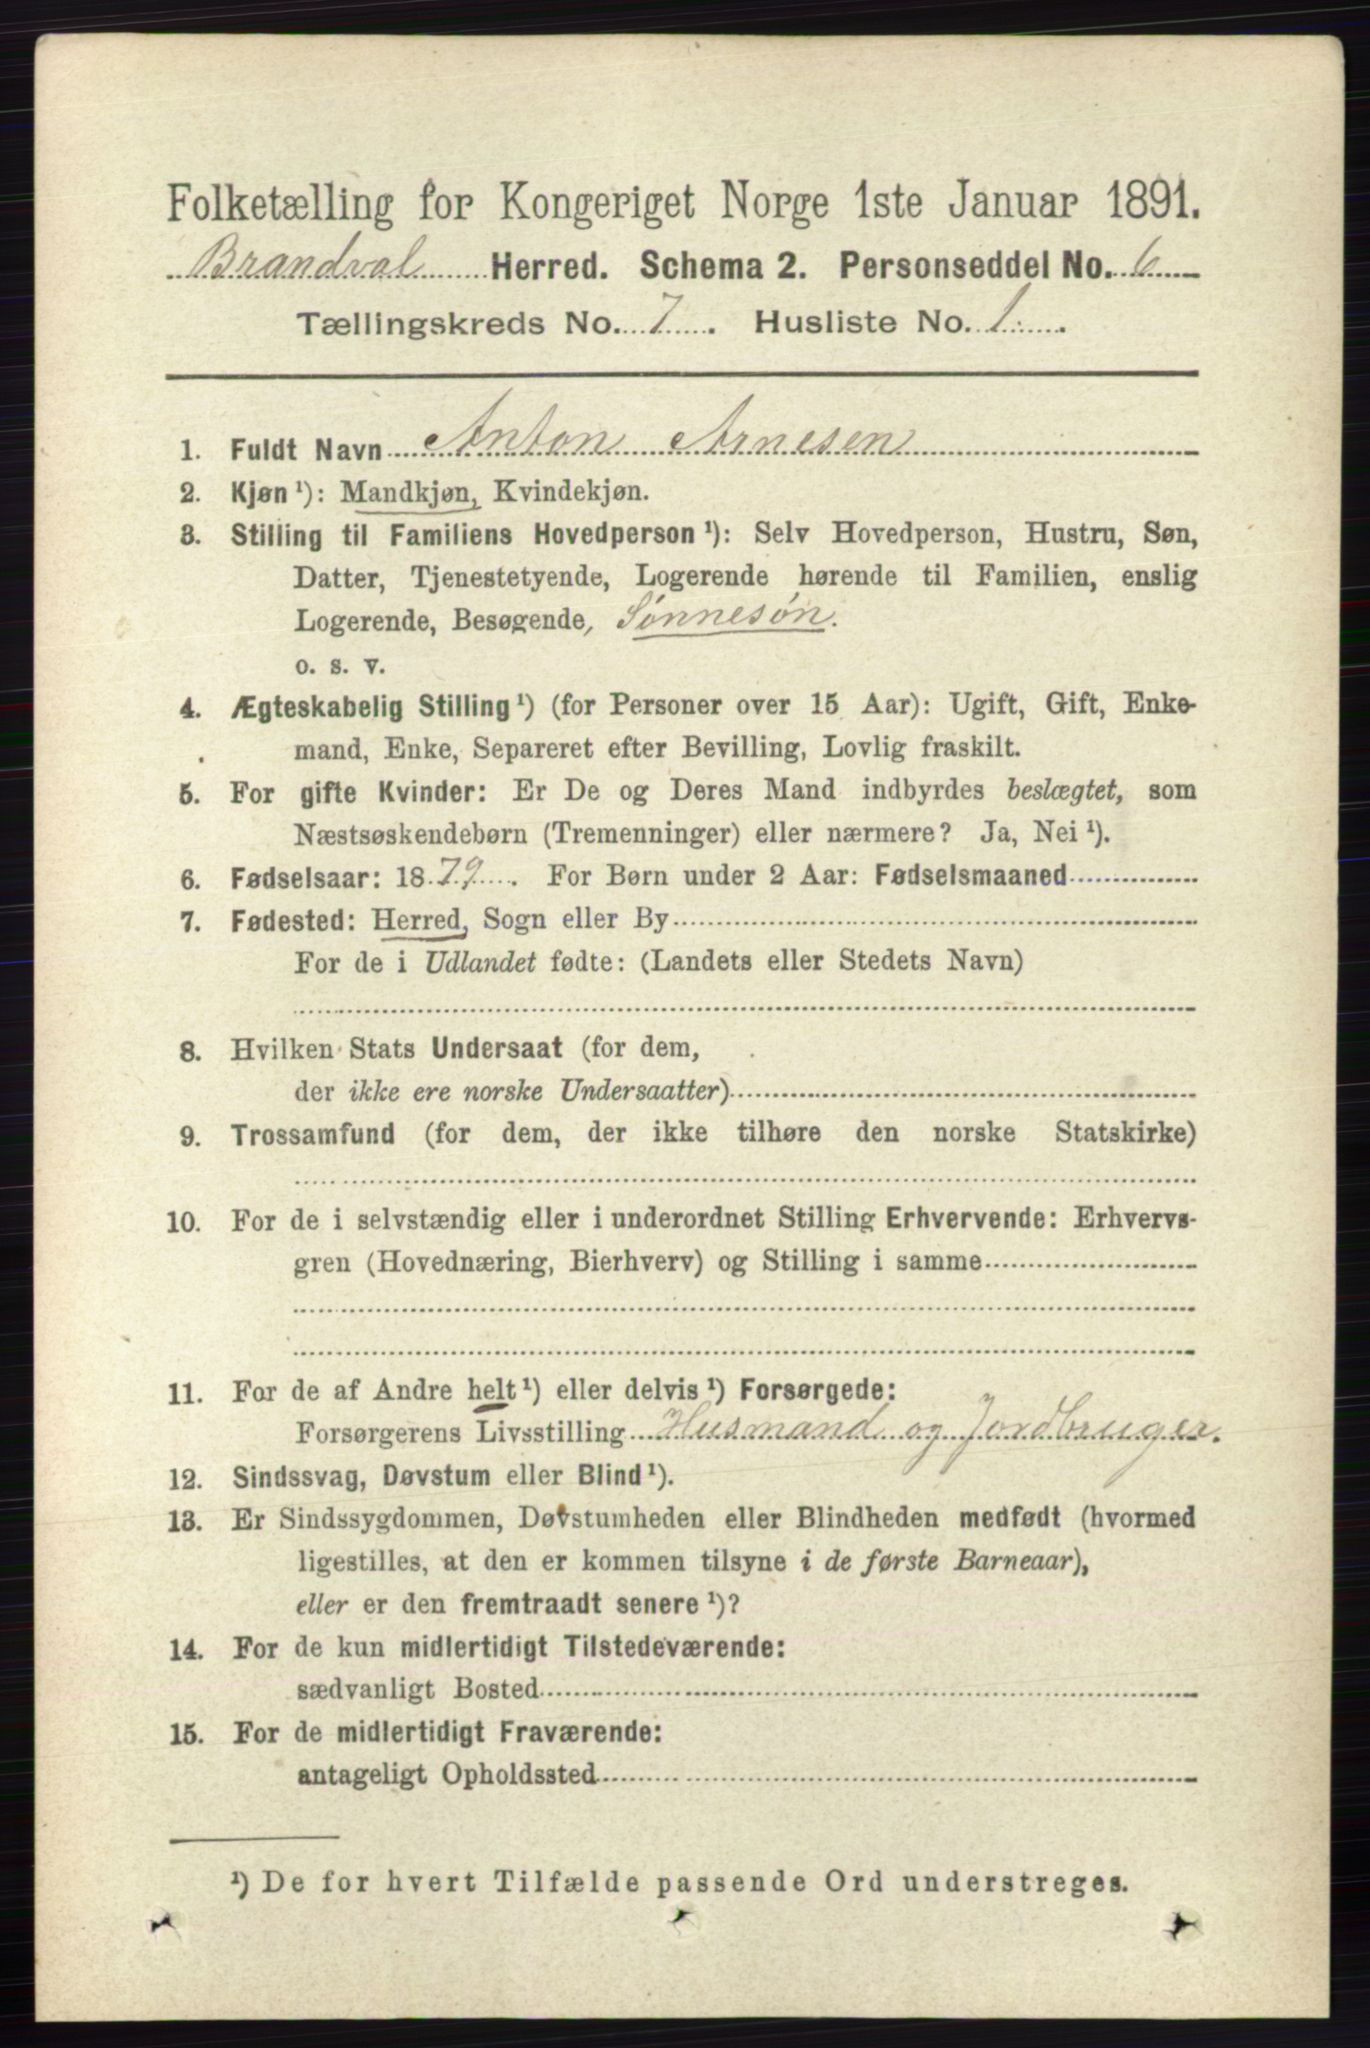 Folketælling for Kongeriget Norge 1ste Januar 1891.
Brandval Herred. Schema 2. Personseddel No. 6
Tællingskreds No. 7. Husliste No. 1.
1. Fuldt Navn Anton Arnesen
2. Kjøn ¹): Mandkjøn, Kvindekjøn.
3. Stilling til Familiens Hovedperson ¹): Selv Hovedperson, Hustru, Søn,
Datter, Tjenestetyende, Logerende hørende til Familien, enslig
Logerende, Besøgende, Sønnesøn.
o. s. v.
4. Ægteskabelig Stilling ¹) (for Personer over 15 Aar): Ugift, Gift, Enke-
mand, Enke, Separeret efter Bevilling, Lovlig fraskilt.
5. For gifte Kvinder: Er De og Deres Mand indbyrdes beslægtet, som
Næstsøskendebørn (Tremenninger) eller nærmere? Ja, Nei ¹).
6. Fødselsaar: 1879. For Børn under 2 Aar: Fødselsmaaned
7. Fødested: Herred, Sogn eller By
For de i Udlandet fødte: (Landets eller Stedets Navn)
8. Hvilken Stats Undersaat (for dem,
der ikke ere norske Undersaatter)
9. Trossamfund (for dem, der ikke tilhøre den norske Statskirke)
10. For de i selvstændig eller i underordnet Stilling Erhvervende: Erhvervs-
gren (Hovednæring, Bierhverv) og Stilling i samme
11. For de af Andre helt ¹) eller delvis ¹) Forsørgede:
Forsørgerens Livsstilling Husmand og Jordbruger.
12. Sindssvag, Døvstum eller Blind ¹).
13. Er Sindssygdommen, Døvstumheden eller Blindheden medfødt (hvormed
ligestilles, at den er kommen tilsyne i de første Barneaar),
eller er den fremtraadt senere ¹)?
14. For de kun midlertidigt Tilstedeværende:
sædvanligt Bosted
15. For de midlertidigt Fraværende:
antageligt Opholdssted
¹) De for hvert Tilfælde passende Ord understreges.